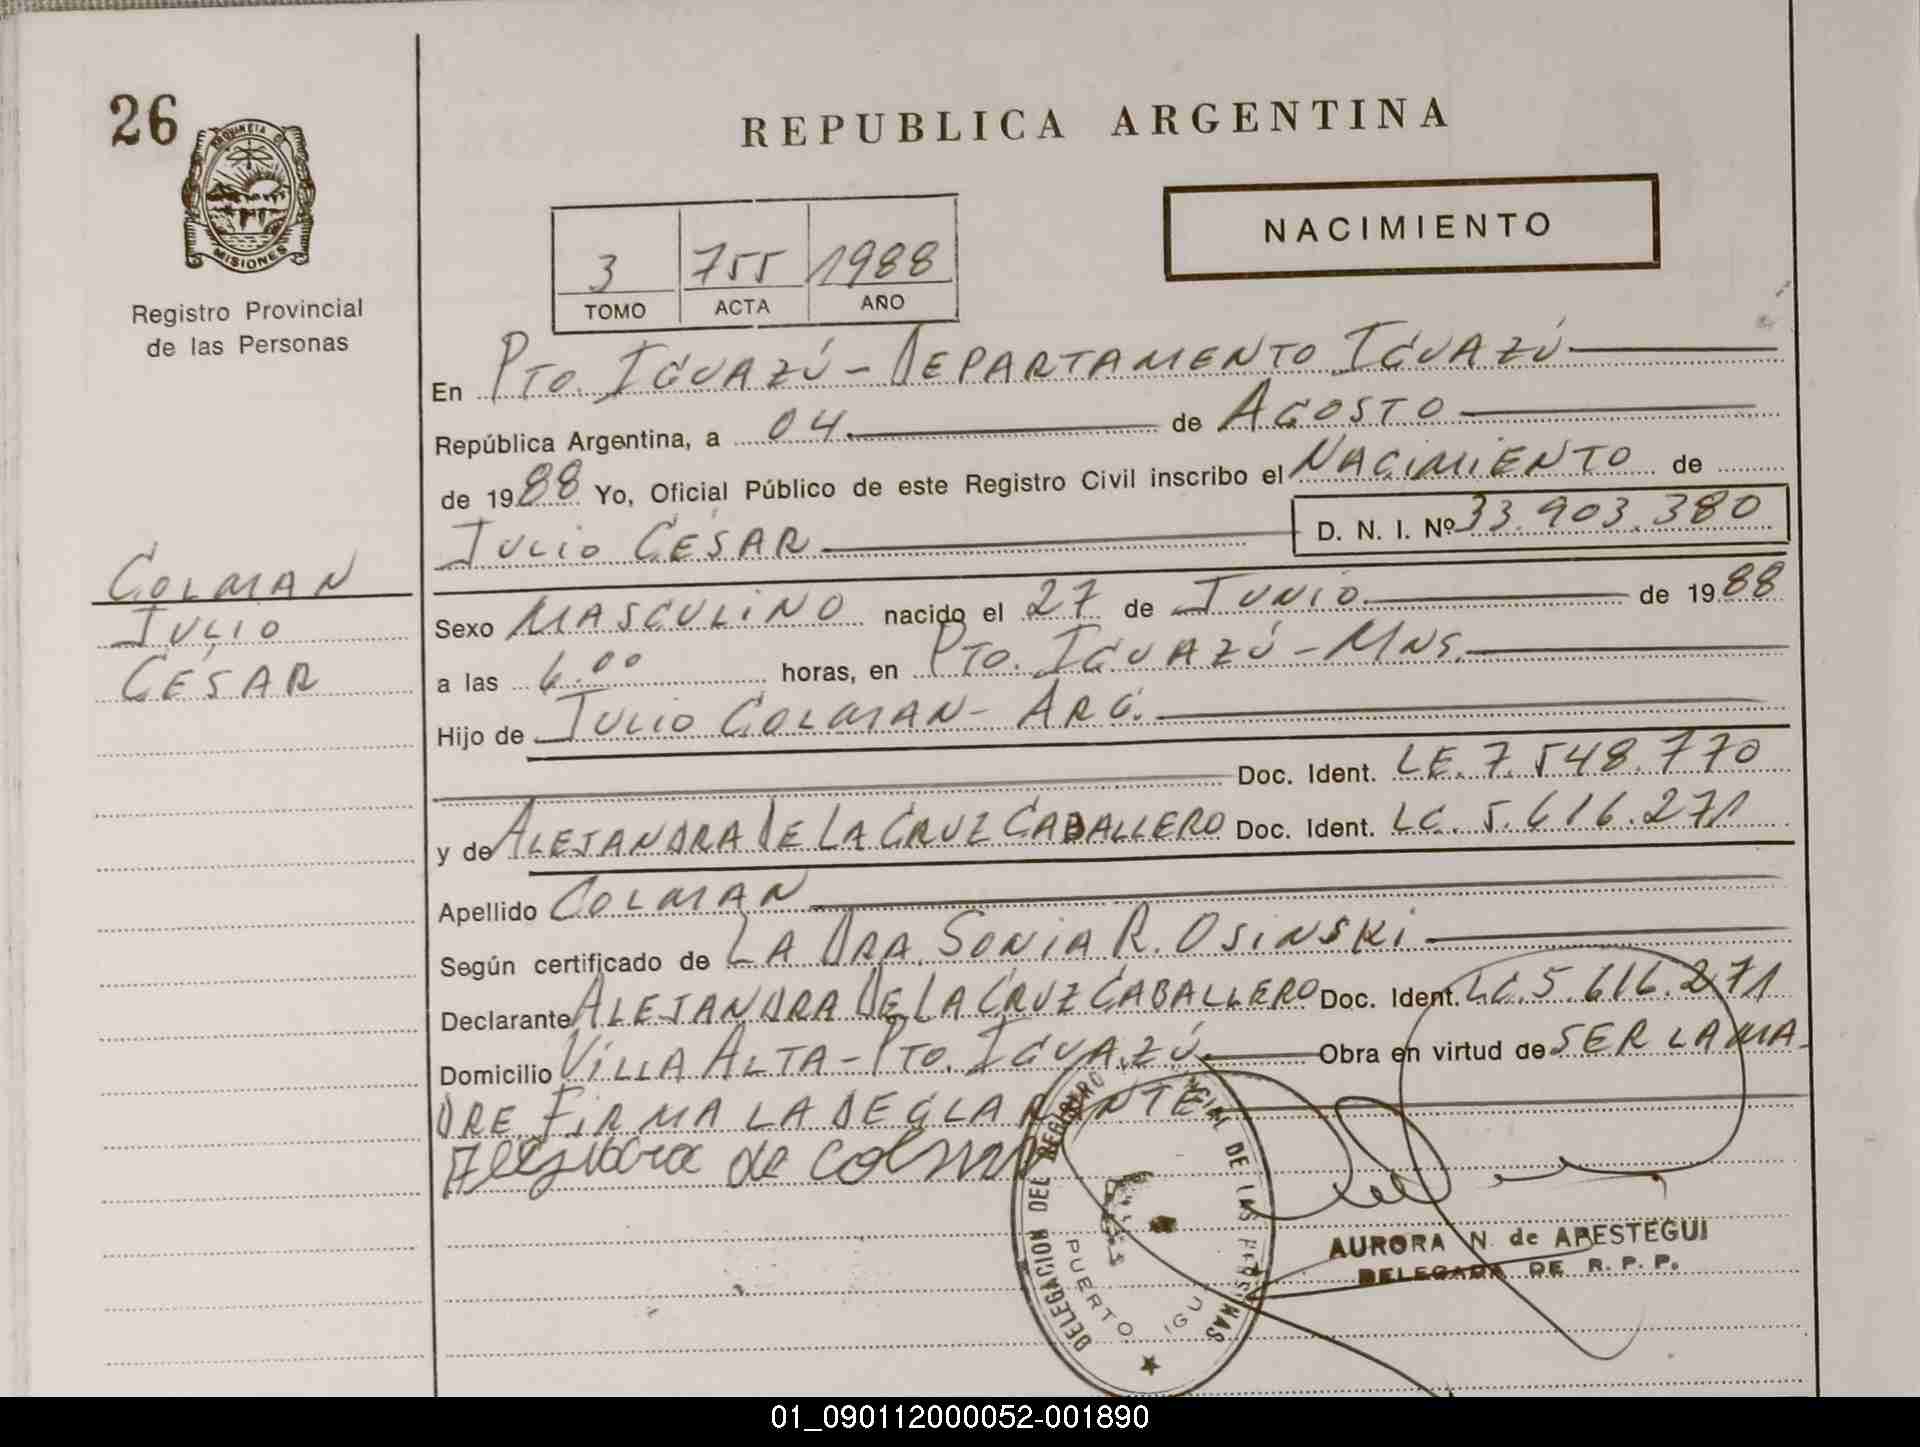 26
PROVINCIA DE
MISIONES
Registro Provincial
de las Personas
REPUBLICA ARGENTINA
NACIMIENTO
3 755 1988
TOMO ACTA AÑO
En PTO. IGUAZÚ - DEPARTAMENTO IGUAZÚ
República Argentina, a 04 de AGOSTO
de 1988 Yo, Oficial Público de este Registro Civil inscribo el NACIMIENTO de
JULIO CÉSAR D. N. I. Nº 33.903.380
COLMAN
JULIO
CÉSAR
Sexo MASCULINO nacido el 27 de JUNIO de 1988
a las 6.00 horas, en PTO. IGUAZÚ - MNS.
Hijo de JULIO COLMAN - ARG.
Doc. Ident. LE. 7.548.770
y de ALEJANDRA DE LA CRUZ CABALLERO Doc. Ident. LC. 5.616.271
Apellido COLMAN
Según certificado de LA DRA. SONIA R. OSINSKI
Declarante ALEJANDRA DE LA CRUZ CABALLERO Doc. Ident. LC. 5.616.271
Domicilio VILLA ALTA - PTO. IGUAZÚ Obra en virtud de SER LA MA-
DRE. FIRMA LA DECLARANTE
Alejandra de Colman
DELEGACION DEL REGISTRO DE LAS PERSONAS
PUERTO IGU
AURORA N. de ARESTEGUI
DELEGADA DE R. P. P.
01_090112000052-001890